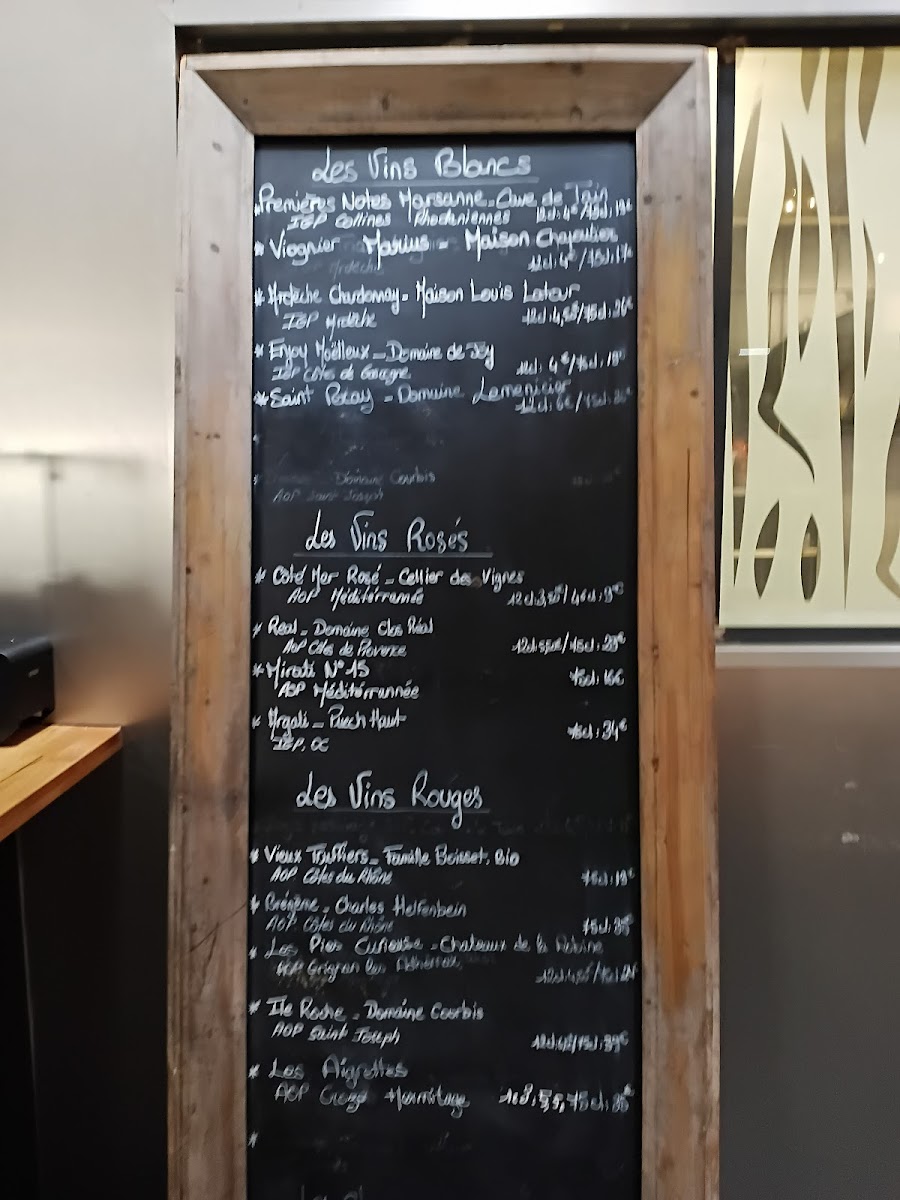 Les Vins Blancs
* Premières Notes Marsanne - Cave de Tain
IGP Collines Rhodaniennes 12cl: 4€/75cl: 19€
* Viognier Marius - Maison Chapoutier
Ardèche 12cl: 4€/75cl: 17€
* Ardèche Chardonnay - Maison Louis Latour
IGP Ardèche 12cl: 4,50€/75cl: 26€
* Enjoy Moëlleux - Domaine de Joy
IGP Côtes de Gascogne 12cl: 4€/75cl: 19€
* Saint Peray - Domaine Lemenicier
12cl: 6€/75cl:
*
* Domaine Courbis
AOP Saint Joseph
Les Vins Rosés
* Coté Mer Rosé - Cellier des Vignes
AOP Méditérrannée 12cl 3,50€/46cl: 9€
* Real - Domaine Clos Réal
AOP Côtes de Provence 12cl: 5,50€/75cl: 29€
* Mirati N°15 75cl: 16€
AOP Méditérrannée
* Argali - Puech Haut 75cl: 34€
IGP. OC
Les Vins Rouges
* Vieux Truffiers - Famille Boisset. Bio
AOP Côtes du Rhône 75cl: 19€
* - Charles Helfenbein
AOP Côtes du Rhône 75cl: 35€
* Les Pies Curieuse - Chateaux de la
AOP Grignan les Adhémar
* Ile Roche - Domaine Courbis
AOP Saint Joseph 75cl: 39€
* Les Aigrettes
AOP Croze Hermitage 75cl: 35€
*